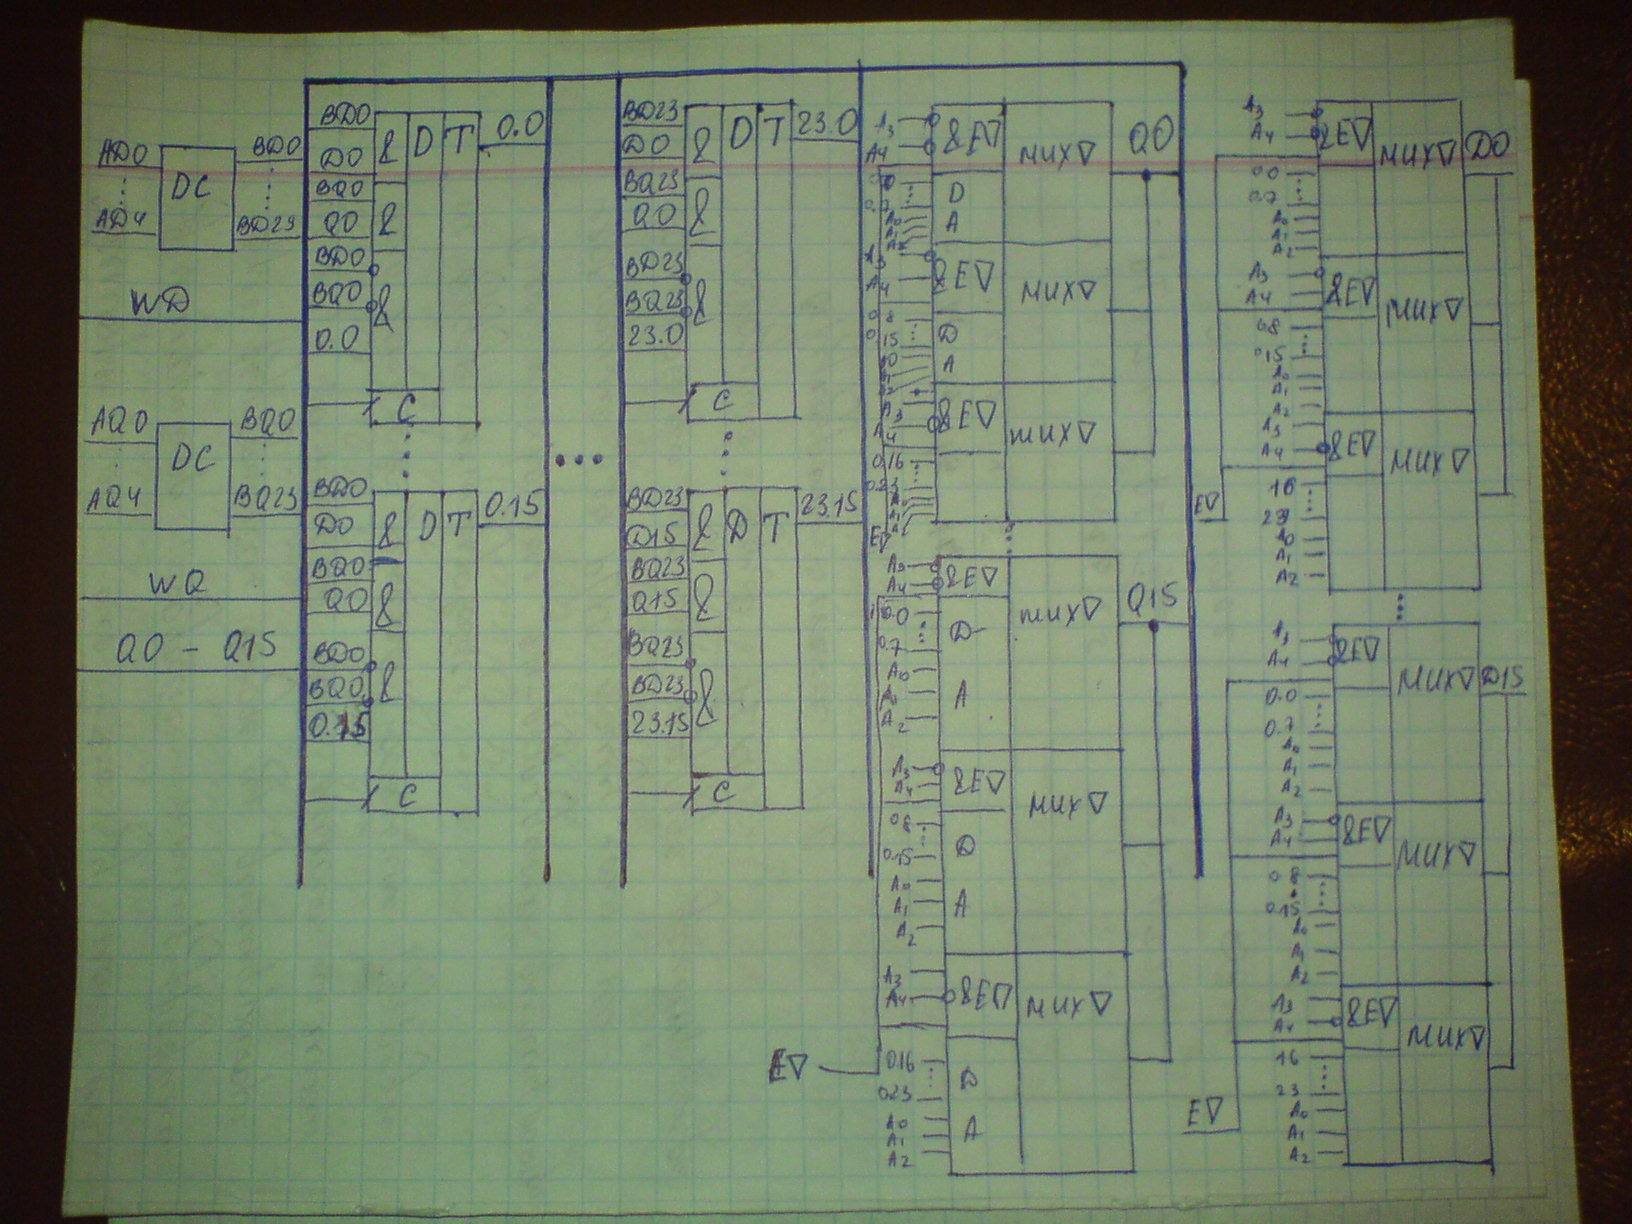 AD0
AD4
DC
BD0
BD23
WD
AQ0
AQ4
DC
BQ0
BQ23
WQ
Q0 - Q15
BD0
D0
BQ0
Q0
BD0
BQ0
0.0
& D T
&
&
C
0.0
BD0
D0
BQ0
Q0
BD0
BQ0
0.15
& D T
&
&
C
0.15
BD23
D0
BQ23
Q0
BD23
BQ23
23.0
& D T
&
&
C
23.0
BD23
D15
BQ23
Q15
BQ23
BD23
23.15
& D T
&
&
C
23.15
A3
A4
&E∇
MUX∇
Q0
0.7
A0
A1
A2
D
A
A3
A4
&E∇
MUX∇
0.8
0.15
A0
D
A
A3
A4
&E∇
MUX∇
0.16
0.23
A0
A1
A2
E∇
A3
A4
&E∇
MUX∇
Q15
0.0
0.7
A0
A0
A2
D
A
A3
A4
&E∇
MUX∇
0.8
0.15
A0
A1
A2
D
A
A3
A4
&E∇
MUX∇
0.16
0.23
A0
A1
A2
D
A
E∇
A3
A4
&E∇
MUX∇
D0
0.0
0.7
A0
A1
A2
A3
A4
&E∇
MUX∇
0.8
0.15
A0
A1
A2
A3
A4
&E∇
MUX∇
16
23
A0
A1
A2
E∇
A3
A4
&E∇
MUX∇
D15
0.0
0.7
A0
A1
A2
A3
A4
&E∇
MUX∇
0.8
0.15
A0
A1
A2
A3
A4
&E∇
MUX∇
16
23
A0
A1
A2
E∇